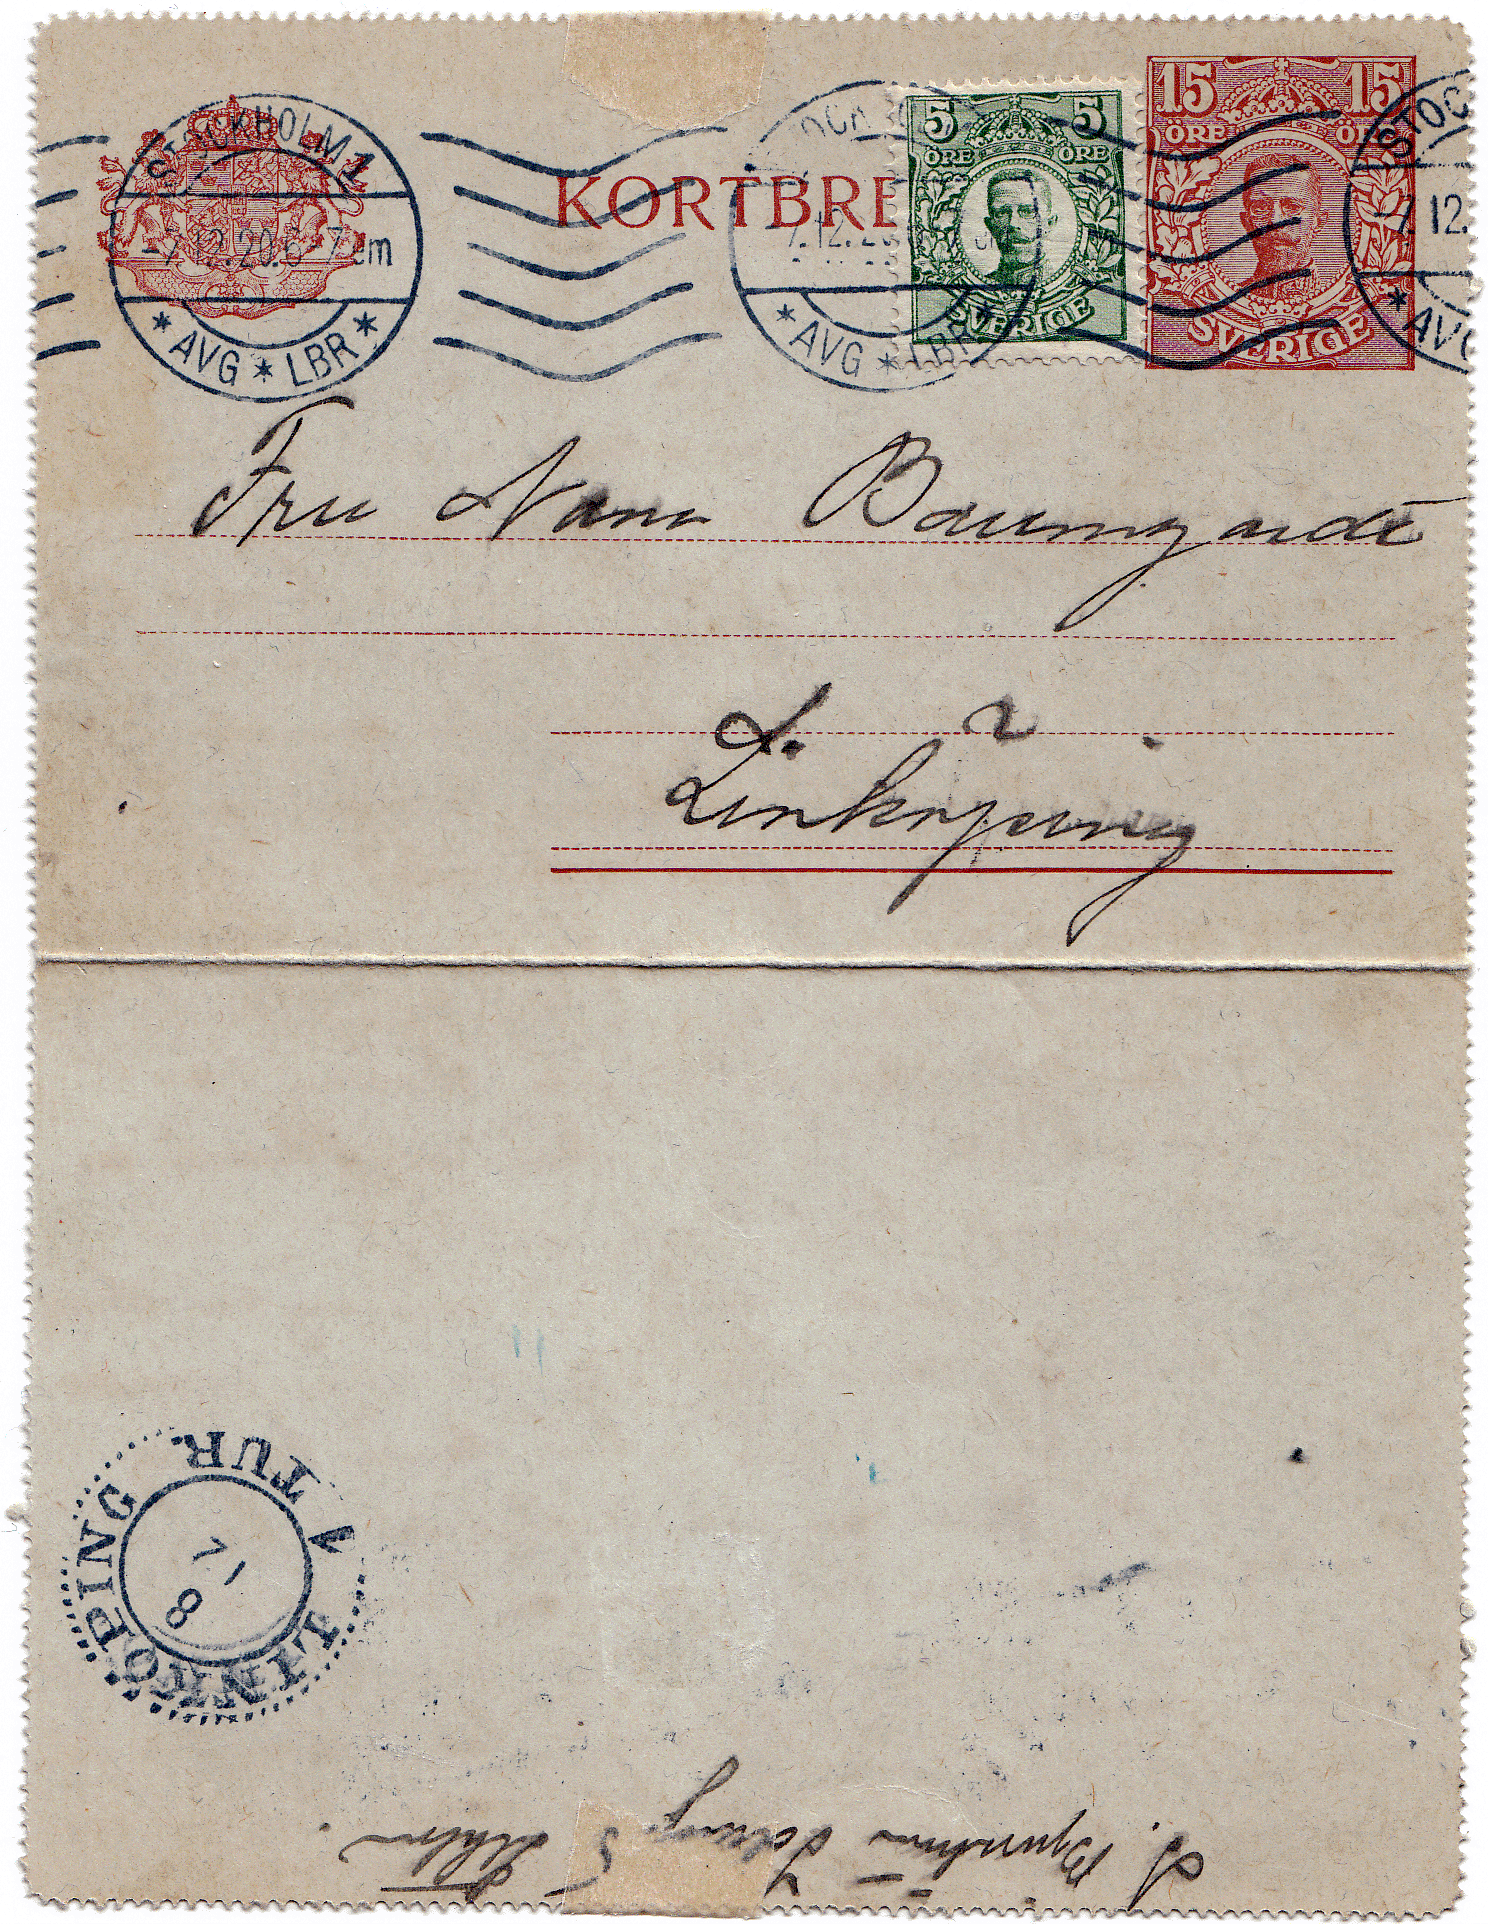 STOCKHOLM 1
-7.12.20.6-7 em
* AVG * LBR *
KORTBRE
5 5
ÖRE ÖRE
SVERIGE
15 15
ÖRE ÖRE
SVERIGE
STOC
-7.12.
* AVG
* AVG * LBR
Fru Nana
L. 2
Linköping
LINKÖPING 1 TUR
8